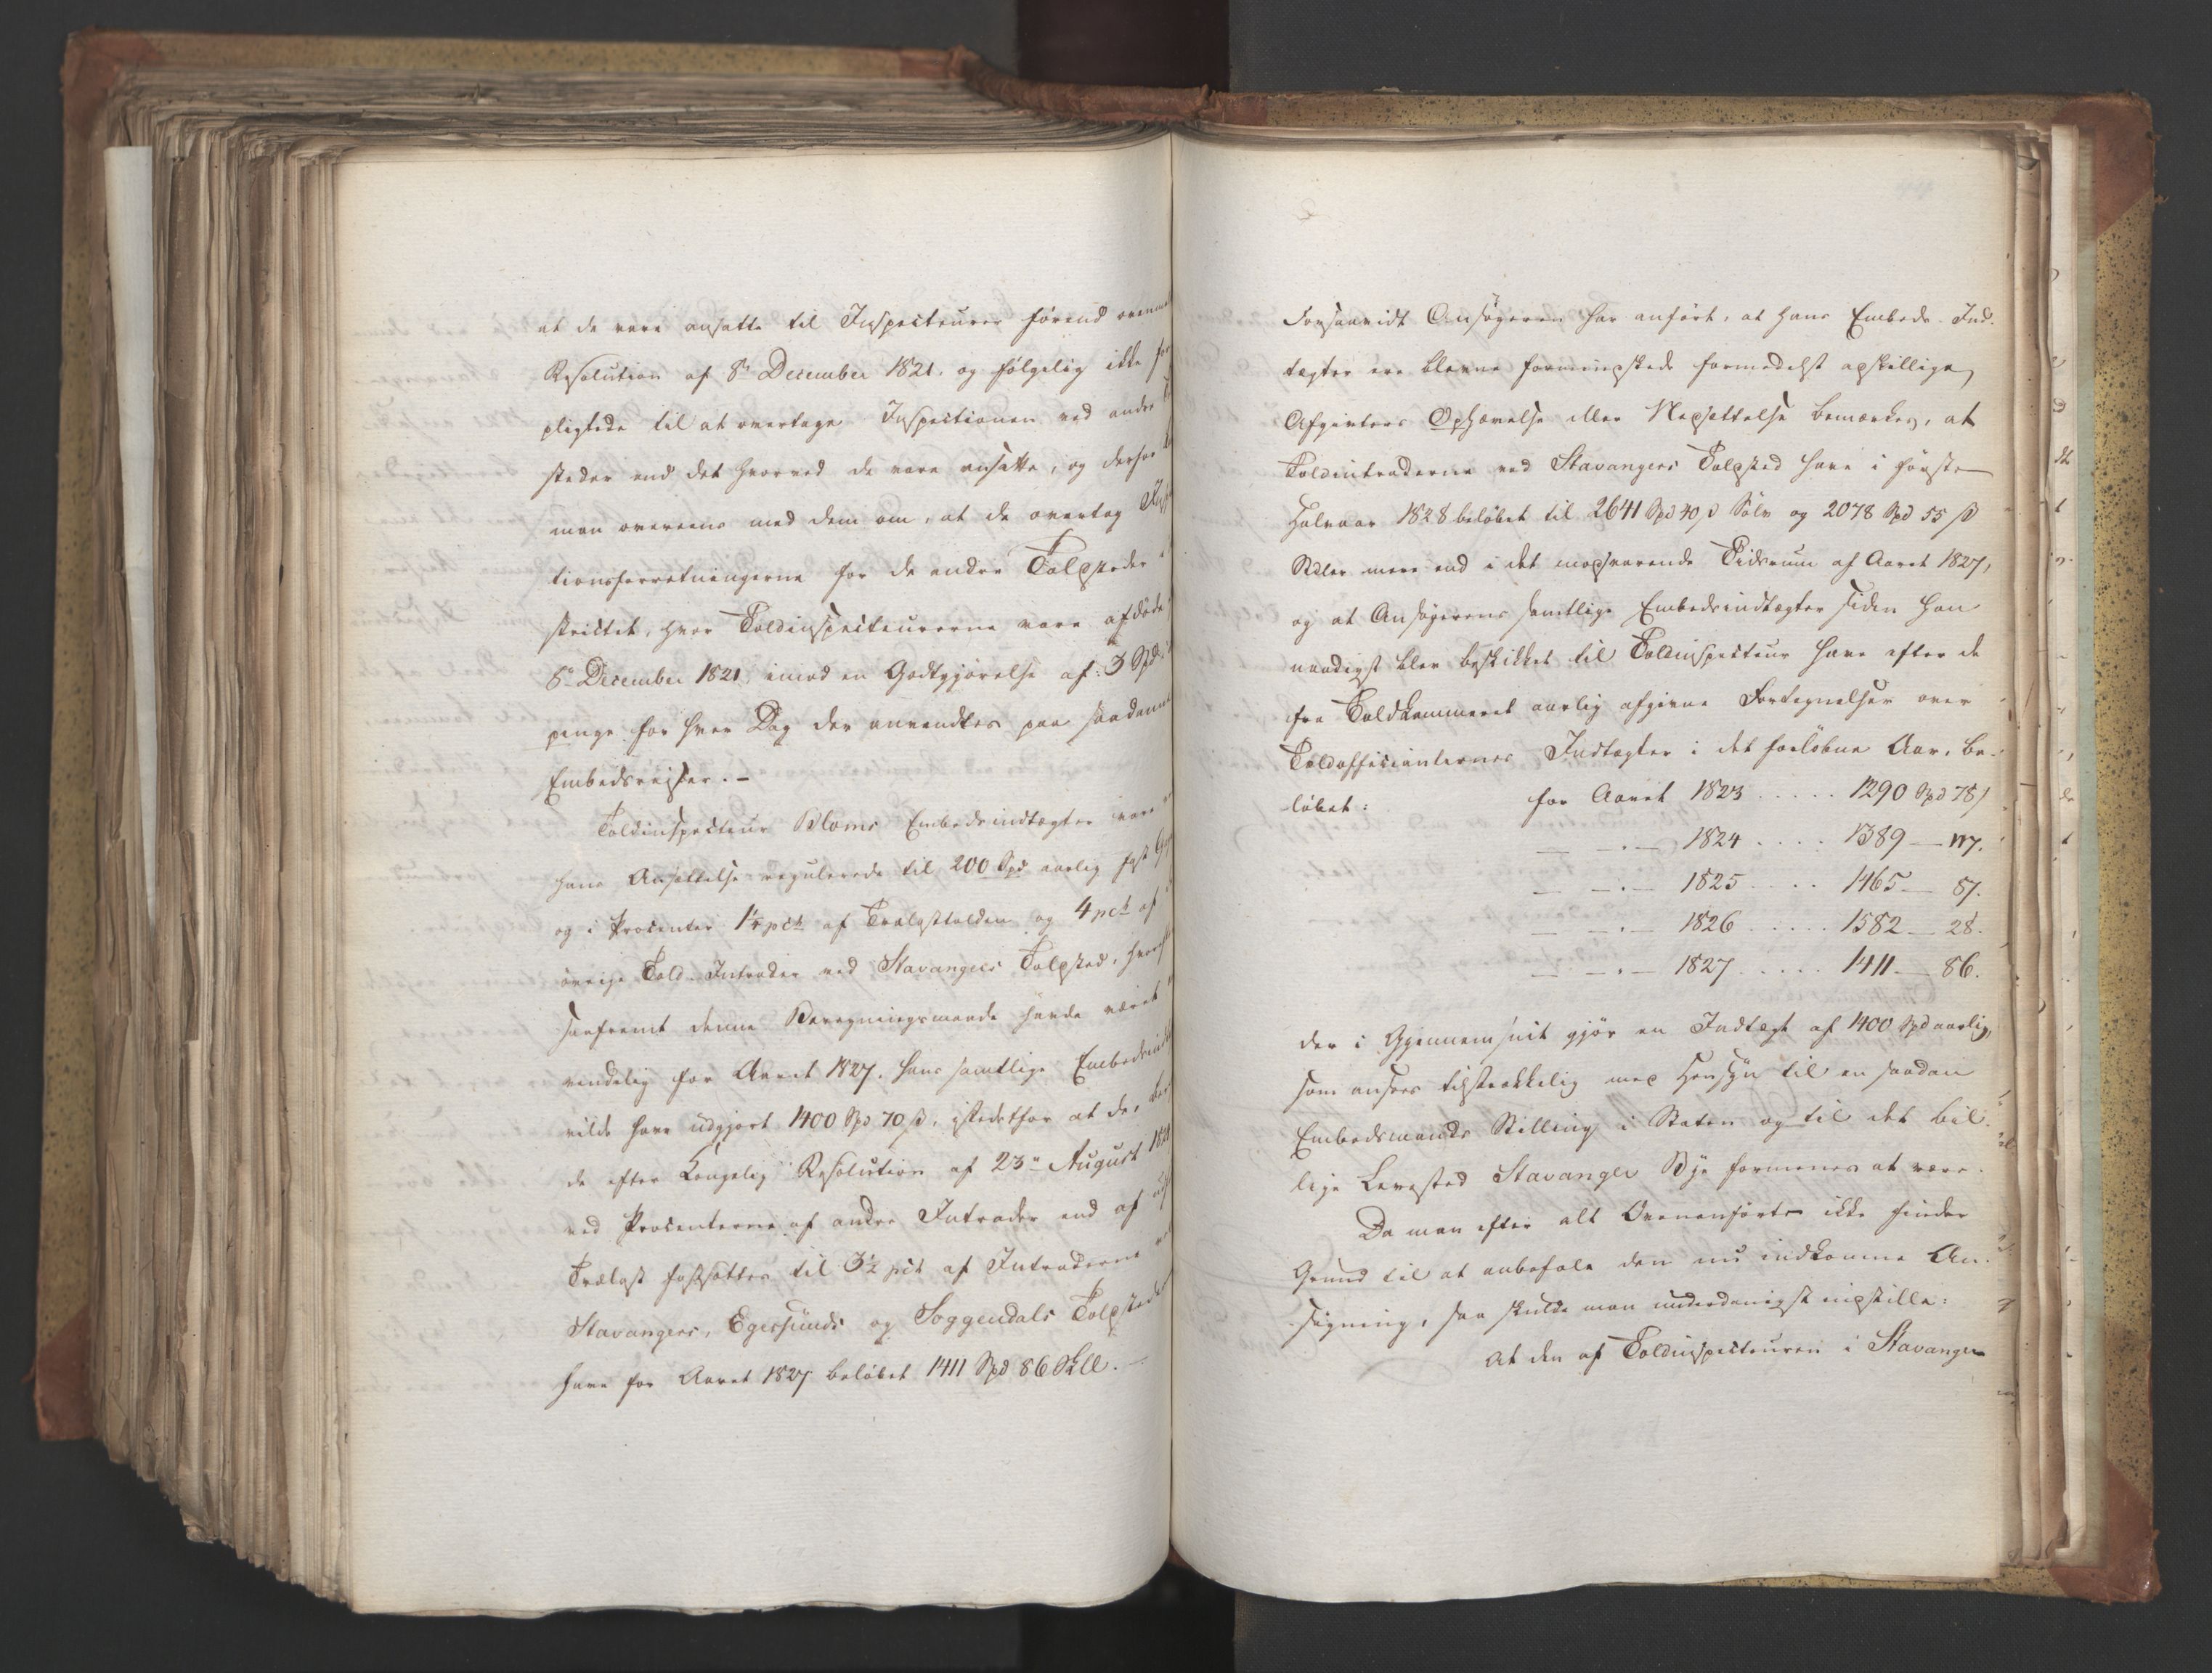 at de vare ansatte til Inspecteurer förend
Resolution af 8de December 1821, og fölgelig ikke
pligtede til at overtage Inspectionen ved andre
steder end det hvorved de vare ansatte, og derfor
man overeens med dem om, at de overtog
tionsforretningerne for de andre Toldsteder
strictet, hvor Toldinspecteurerne vare afdöde
8de December 1821, imod en Godtgjörelse af 3 Spd
penge for hver Dag der anvendtes paa saadanne
Embedsreiser. -
Toldinspecteur Bloms Embedsindtægter vare
hans Ansættelse regulerede til 200 Spd aarlig fast
og i Procenter 1½ pCt af Trælasttolden og 4 pCt af
övrige Told-Intrader ved Stavangers Toldsted,
saafremt denne Beregningsmaade havde været
vendelig for Aaret 1827, hans samtlige
vilde have udgjort 1400 Spd 70 ß, istedetfor at de,
de efter Kongelig Resolution af 23de August
ved Procenterne af andre Intrader end af
Trælast fastsattes til 3½ pCt af Intraderne
Stavangers, Egersunds og Soggendals
have for Aaret 1827 belöbet 1411 Spd 86 Skll. -
Forsaavidt Ansögeren har anfört, at hans Embeds-Ind-
tægter ere blevne formindskede formedelst adskillige
Afgivters Ophævelse eller Nedsættelse bemærkes, at
Toldintraderne ved Stavangers Toldsted have i förste
Halvaar 1828 belöbet til 2641 Spd 40 ß Sölv og 2078 Spd 55 ß
Sedler mere end i det modsvarende Tidsrum af Aaret 1827,
og at Ansögerens samtlige Embedsindtægter siden han
naadigst blev beskikket til Toldinspecteur have efter de
fra Toldkammeret aarlig afgivne Fortegnelser over
Toldofficianternes Indtægter i det forlöbne Aar, be-
löbet: for Aaret 1823 ..... 1290 Spd 78 ß
— -·— 1824 .... 1389 — 117.
— -·— 1825 .... 1465 — 87.
— -·— 1826 ..... 1582 — 28.
— -·— 1827 ..... 1411 — 86.
der i Gjennemsnit gjör en Indtægt af 1400 Spd aarlig,
som ansees tilstrækkelig med Hensyn til en saadan
Embedsmands Stilling i Staten og til det bil-
lige Levested Stavanger Bye formenes at være.
Da man efter alt Ovenanförte ikke finder
Grund til at anbefale den nu indkomne An-
sögning, saa skulde man underdanigst indstille:
At den af Toldinspecteuren i Stavanger